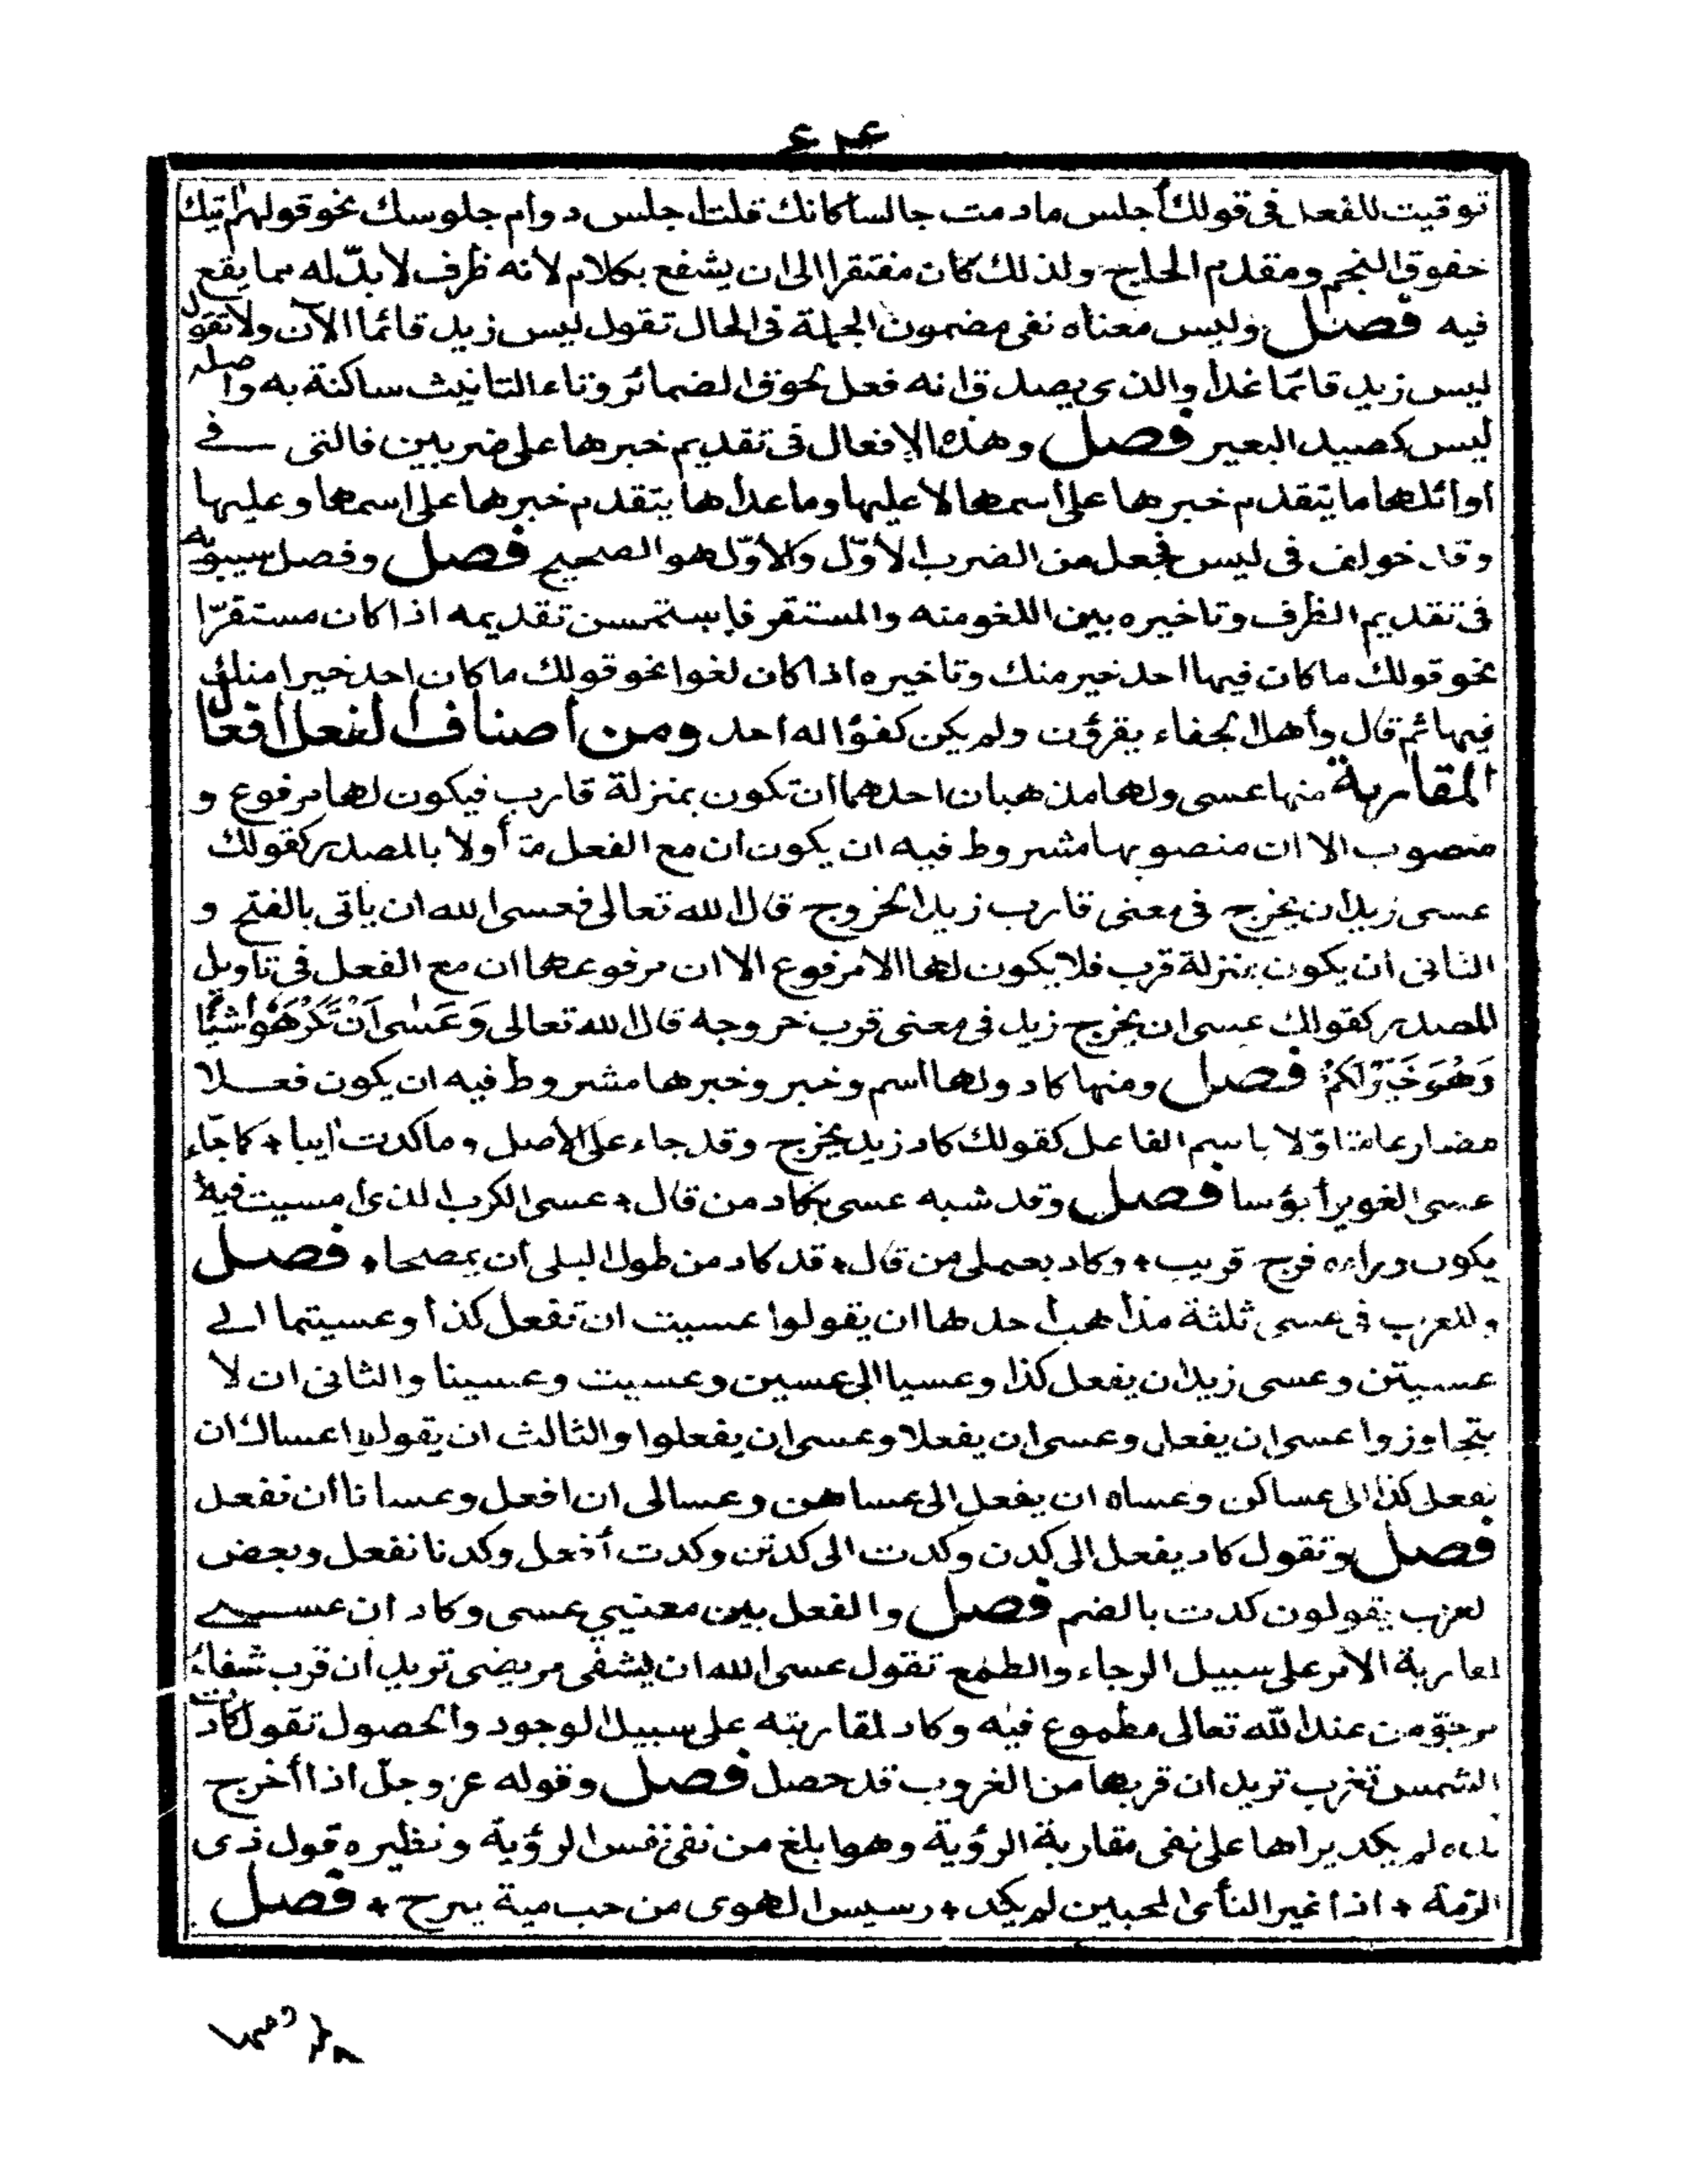 توقيت للفعل فى قولك أجلس ما دمت جالسا كانك قلت اجلس دوام جلوسك نحو قولهم اتيك
خفوق النجم ومقدم الحاج ولذلك كان مفتقرا الى ان يشفع بكلام لانه ظرف لا بدّ له مما يقع
فيه فصل وليس معناه نفى مضمون الجملة فى الحال تقول ليس زيد قائما الآن ولا تقول
ليس زيد قائما غدا والذى يصدق انه فعل لحوق الضمائر وتاء التانيث ساكنة به واصله
ليس كصيد البعير فصل وهذه الافعال فى تقديم خبرها على ضربين فالتى فى
أوائلها ما يتقدم خبرها على اسمها لا عليها وما عداها يتقدم خبرها على اسمها وعليها
وقد خولف فى ليس فجعل من الضرب الأوّل والأوّل هو الصحيح فصل وفصل سيبويه
فى تقديم الظرف وتاخيره بين اللغو منه والمستقر فاستحسن تقديمه اذا كان مستقرّا
نحو قولك ما كان فيها احد خير منك وتاخيره اذا كان لغوا نحو قولك ما كان احد خيرا منك
فيها ثم قال وأهل الجفاء يقرؤن ولم يكن كفؤا له احد ومن أصناف الفعل أفعال
المقاربة منها عسى ولها مذهبان احدهما ان تكون بمنزلة قارب فيكون لها مرفوع و
منصوب الا ان منصوبها مشروط فيه ان يكون ان مع الفعل متأولا بالمصدر كقولك
عسى زيد ان يخرج فى معنى قارب زيد الخروج قال الله تعالى فعسى الله ان ياتى بالفتح و
الثانى ان يكون بمنزلة قرب فلا يكون لها الا مرفوع الا ان مرفوعها ان مع الفعل فى تاويل
المصدر كقولك عسى ان يخرج زيد فى معنى قرب خروجه قال الله تعالى وَعَسٰى اَنْ تَكْرَهُوْا شَيْئًا
وَهُوَ خَيْرٌ لَكُمْ فصل ومنها كاد ولها اسم وخبر وخبرها مشروط فيه ان يكون فعلا
مضارعا متاوّلا باسم الفاعل كقولك كاد زيد يخرج وقد جاء على الأصل وما كدت اٰيبا * كما جاء
عسى الغوير أبؤسا فصل وقد شبه عسى بكاد من قال * عسى الكرب الذى امسيت فيه *
يكون وراءه فرج قريب * وكاد بعسى من قال * قد كاد من طول البلى أن يمصحا * فصل
وللعرب فى عسى ثلثة مذاهب أحدها ان يقولوا عسيت ان تفعل كذا وعسيتما الى
عسيتن وعسى زيد ان يفعل كذا وعسيا الى عسين وعسيت وعسينا والثانى ان لا
يتجاوزوا عسى ان يفعل وعسى ان يفعلا وعسى ان يفعلوا والثالث ان يقولوا عساك ان
تفعل كذا الى عساكن وعساه ان يفعل الى عساهن وعسانى ان افعل وعسانا أن نفعل
فصل وتقول كاد يفعل الى كدن وكدت الى كدتن وكدت أفعل وكدنا نفعل وبعض
لعرب يقولون كدت بالضم فصل والفصل بين معنيي عسى وكاد ان عسى
لمقاربة الامر على سبيل الرجاء والطمع تقول عسى الله ان يشفى مريضى تريد ان قرب شفائه
مرجوّ من عند الله تعالى مطموع فيه وكاد لمقاربته على سبيل الوجود والحصول تقول كادت
الشمس تغرب تريد ان قربها من الغروب قد حصل فصل وقوله عز وجلّ اذا أخرج
يده لم يكد يراها على نفى مقاربة الرؤية وهو ابلغ من نفى نفس الرؤية ونظيره قول ذى
الرّمة * اذا غير النأى المحبين لم يكد * رسيس الهوى من حب مية يبرح * فصل
ومنها